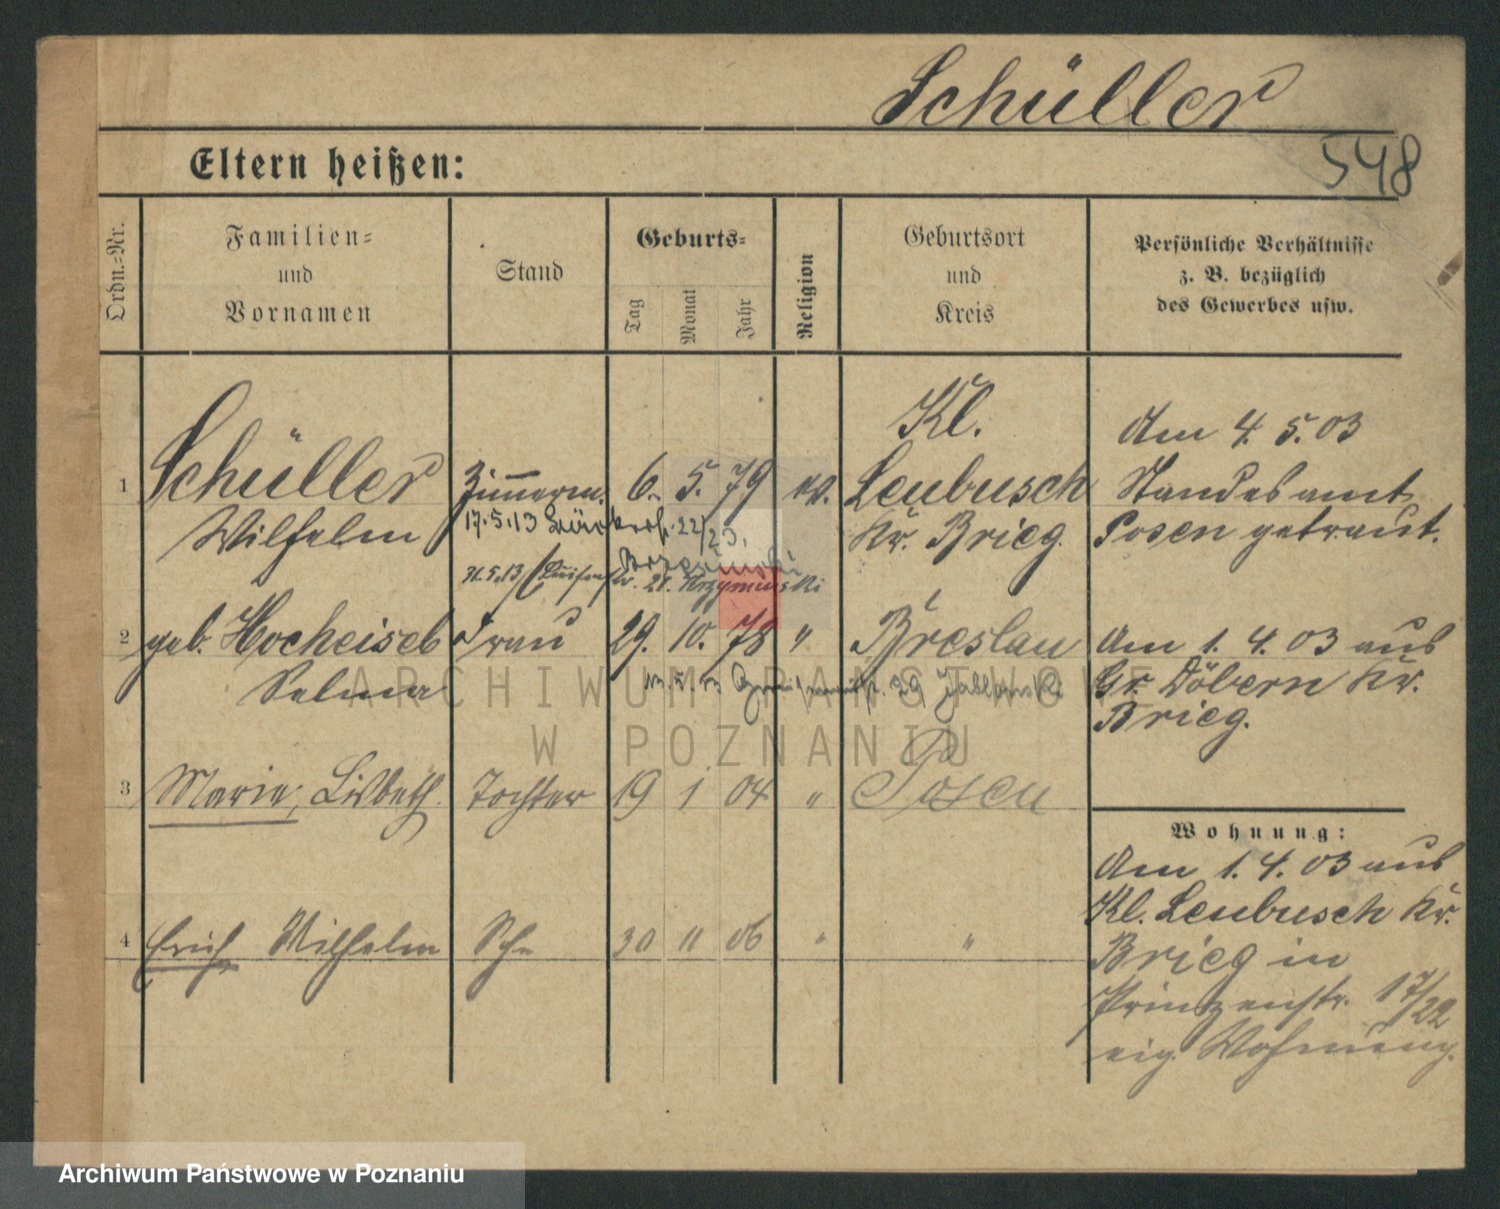 Schüller
548
Eltern heißen:
Ordn.-Nr.
Familien-
und
Vornamen
Stand
Geburts-
Tag
Monat
Jahr
Religion
Geburtsort
und
Kreis
Persönliche Verhältnisse
z. B. bezüglich
des Gewerbes usw.
1 Schüller Zimmerm. 6. 5. 79 Kl. Leubusch
Wilhelm Kr. Brieg
17.5.13 22/23.
31.5.13 Luisenstr. 21. Krzyminski
Am 4. 5. 03
Standesamt
Posen getraut.
2 geb. Hocheiseb Frau 29. 10. 78 " Breslau
Selma
29 Jablonski
Am 1. 4. 03 aus
Gr. Döbern Kr.
Brieg.
3 Marie, Lisbeth. Tochter 19 1 04 " Posen
4 Erich Wilhelm 30 11 06 " "
Wohnung:
Am 1. 4. 03 aus
Kl. Leubusch Kr.
Brieg in
Prinzenstr. 17/22
eig. Wohnung.
ARCHIWUM PAŃSTWOWE
W POZNANIU
Archiwum Państwowe w Poznaniu